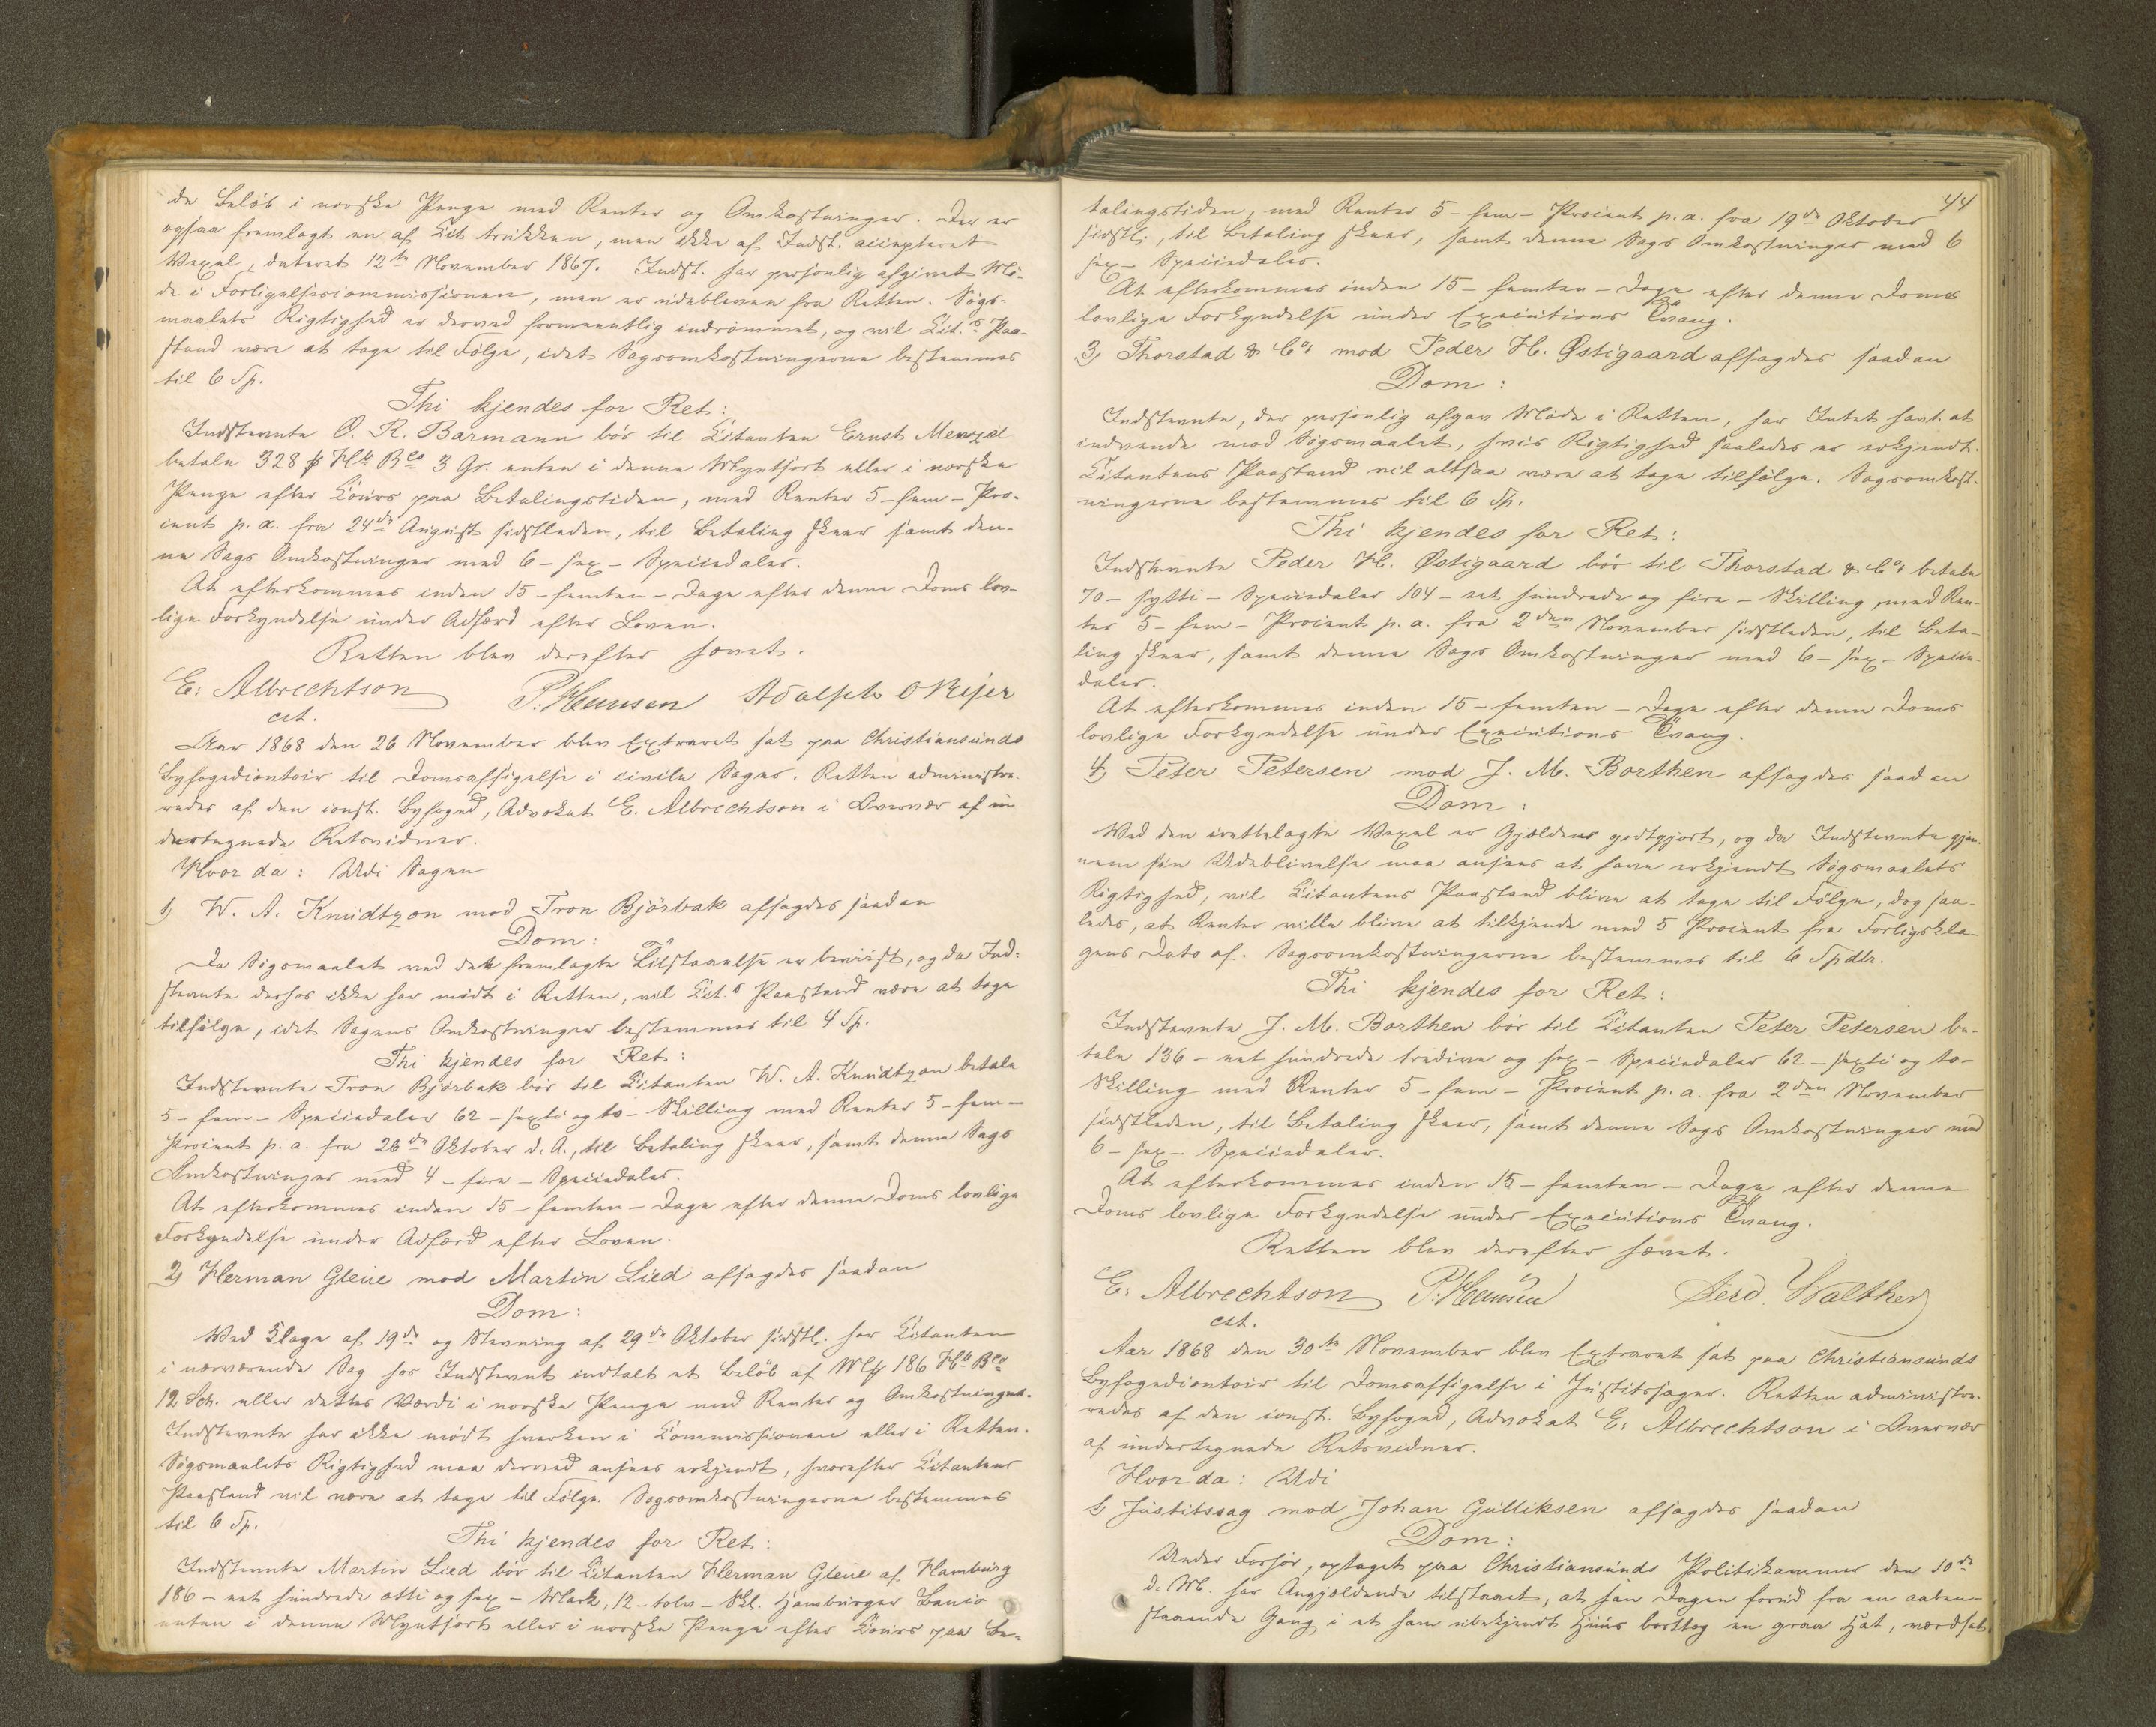 de Beløb i norske Penge med Renter og Omkostninger. Der er
ogsaa fremlagt en af Cit. trukken, men ikke af Indst. accepteret
Vexel, dateret 12te November 1867. Indst. har personlig afgivet Mö-
de i Forligelsescommissionen, men er udebleven fra Retten. Sögs-
maalets Rigtighed er derved formentlig indrömmet, og vil Cit.s Paa-
stand være at tage til Fölge, idet Sagsomkostningerne bestemmes
til 6 Sp.
Thi kjendes for Ret:
Indstevnte O. R. Barmann bör til Citanten Ernst Menzel
betale 328 ꝟ Hbg Bco 3 Gr. enten i denne Myntsort eller i norske
Penge efter Cours paa Betalingstiden, med Renter 5 - fem - Pro-
cent p. a. fra 24de August sidstleden, til Betaling skeer samt den-
ne Sags Omkostninger med 6 - sex - Speciedaler.
At efterkommes inden 15 - femten - Dage efter denne Doms lov-
lige Forkyndelse under Adfærd efter Loven.
Retten blev derefter hævet.
E. Albrechtson P. Hansen Adolph
cst.
Aar 1868 den 26 November blev Extraret sat paa Christiansunds
Byfogedcontoir til Domsafsigelse i civile Sager. Retten administre-
redes af den const. Byfoged, Advokat E. Albrechtson i Overvær af un
dertegnede Retsvidner.
Hvor da: Udi Sagen
1) W. A. Knudtzon mod Tron Björbak afsagdes saadan
Dom:
Da Sögsmaalet ved den fremlagte Tilstaaelse er beviist, og da Ind-
stevnte derhos ikke har mödt i Retten, vil Cit.s Paastand være at tage
tilfölge, idet Sagens Omkostninger bestemmes til 4 Sp.
Thi kjendes for Ret:
Indstevnte Tron Björbak bör til Citanten W. A. Knudtzon betale
5 - fem - Speciedaler 62 - sexti og to - Skilling med Renter 5 - fem -
Procent p. a. fra 26de Oktober d. A., til Betaling skeer, samt denne Sags
Omkostninger med 4 - fire - Speciedaler.
At efterkommes inden 15 - femten - Dage efter denne Doms lovlige
Forkyndelse under Adfærd efter Loven.
2) Herman Gleue mod Martin Lied afsagdes saadan
Dom:
Ved Klage af 19de og Stevning af 29de Oktober sidstl. har Citanten
i nærværende Sag hos Indstevnte indtalt et Belöb af 186 Hbg Bco
12 Sch. eller dettes Værdi i norske Penge med Renter og Omkostninger.
Indstevnte har ikke mödt hverken i Commissionen eller i Retten.
Sögsmaalets Rigtighed maa derved ansees erkjendt, hvorefter Citantens
Paastand vil være at tage til Fölge. Sagsomkostningerne bestemmes
til 6 Sp.
Thi kjendes for Ret:
Indstevnte Martin Lied bör til Citanten Herman Gleue af Hamburg
186 - eet hundrede otti og sex - Mark, 12 - tolv - Skl. Hamburger Banco
enten i denne Myntsort eller i norske Penge efter Cours paa Be-
44
talingstiden, med Renter 5 - fem - Procent p. a. fra 19de Oktober
sidstl., til Betaling skeer, samt denne Sags Omkostninger med 6
sex - Speciedaler.
At efterkommes inden 15 - femten - Dage efter denne Doms
lovlige Forkyndelse under Executions Tvang.
3) Thorstad & Co. mod Peder H. Østigaard afsagdes saadan
Dom:
Indstevnte, der personlig afgav Möde i Retten, har Intet havt at
indvende mod Sögsmaalet, hvis Rigtighed saaledes er erkjendt.
Citantens Paastand vil altsaa være at tage tilfölge. Sagsomkost-
ningerne bestemmes til 6 Sp.
Thi kjendes for Ret:
Indstevnte Peder H. Østigaard bör til Thorstad & Co. betale
70 - sytti - Speciedaler 104 - eet hundrede og fire - Skilling, med Ren-
ter 5 - fem - Procent p. a. fra 2den November sidstleden, til Beta-
ling skeer, samt denne Sags Omkostninger med 6 - sex - Specie-
daler.
At efterkommes inden 15 - femten - Dage efter denne Doms
lovlige Forkyndelse under Executions Tvang.
4) Peter Petersen mod J. M. Borthen afsagdes saadan
Dom:
Ved den irettelagte Vexel er Gjælden godtgjort, og da Indstevnte gjen-
nem sin Udeblivelse maa ansees at have erkjendt Sögsmaalets
Rigtighed, vil Citantens Paastand blive at tage til Fölge, dog saa-
ledes, at Renter ville blive at tilkjende med 5 Procent fra Forligskla-
gens Dato af. Sagsomkostningerne bestemmes til 6 Spdlr.
Thi kjendes for Ret:
Indstevnte J. M. Borthen bör til Citanten Peter Petersen be-
tale 136 - eet hundrede tredive og sex - Speciedaler 62 - sexti og to -
Skilling med Renter 5 - fem - Procent p. a. fra 2den November
sidstleden, til Betaling skeer, samt denne Sags Omkostninger med
6 - sex - Speciedaler.
At efterkommes inden 15 - femten - Dage efter denne
Doms lovlige Forkyndelse under Executions Tvang.
Retten blev derefter hævet.
E. Albrechtson P. Hansen Ferd. Walther
cst.
Aar 1868 den 30te November blev Extraret sat paa Christiansunds
Byfogedcontoir til Domsafsigelse i Justitssager. Retten administre-
redes af den const. Byfoged, Advokat E. Albrechtson i Overvær
af undertegnede Retsvidner.
Hvor da: Udi
1) Justitssag mod Johan Gulliksen afsagdes saadan
Dom:
Under Forhör, optaget paa Christiansunds Politikammer den 10de
d. M. har Angjældende tilstaaet, at han Dagen forud fra en aaben-
staaende Gang i et ham ubekjendt Huus borttog en graa Hat, værdsat